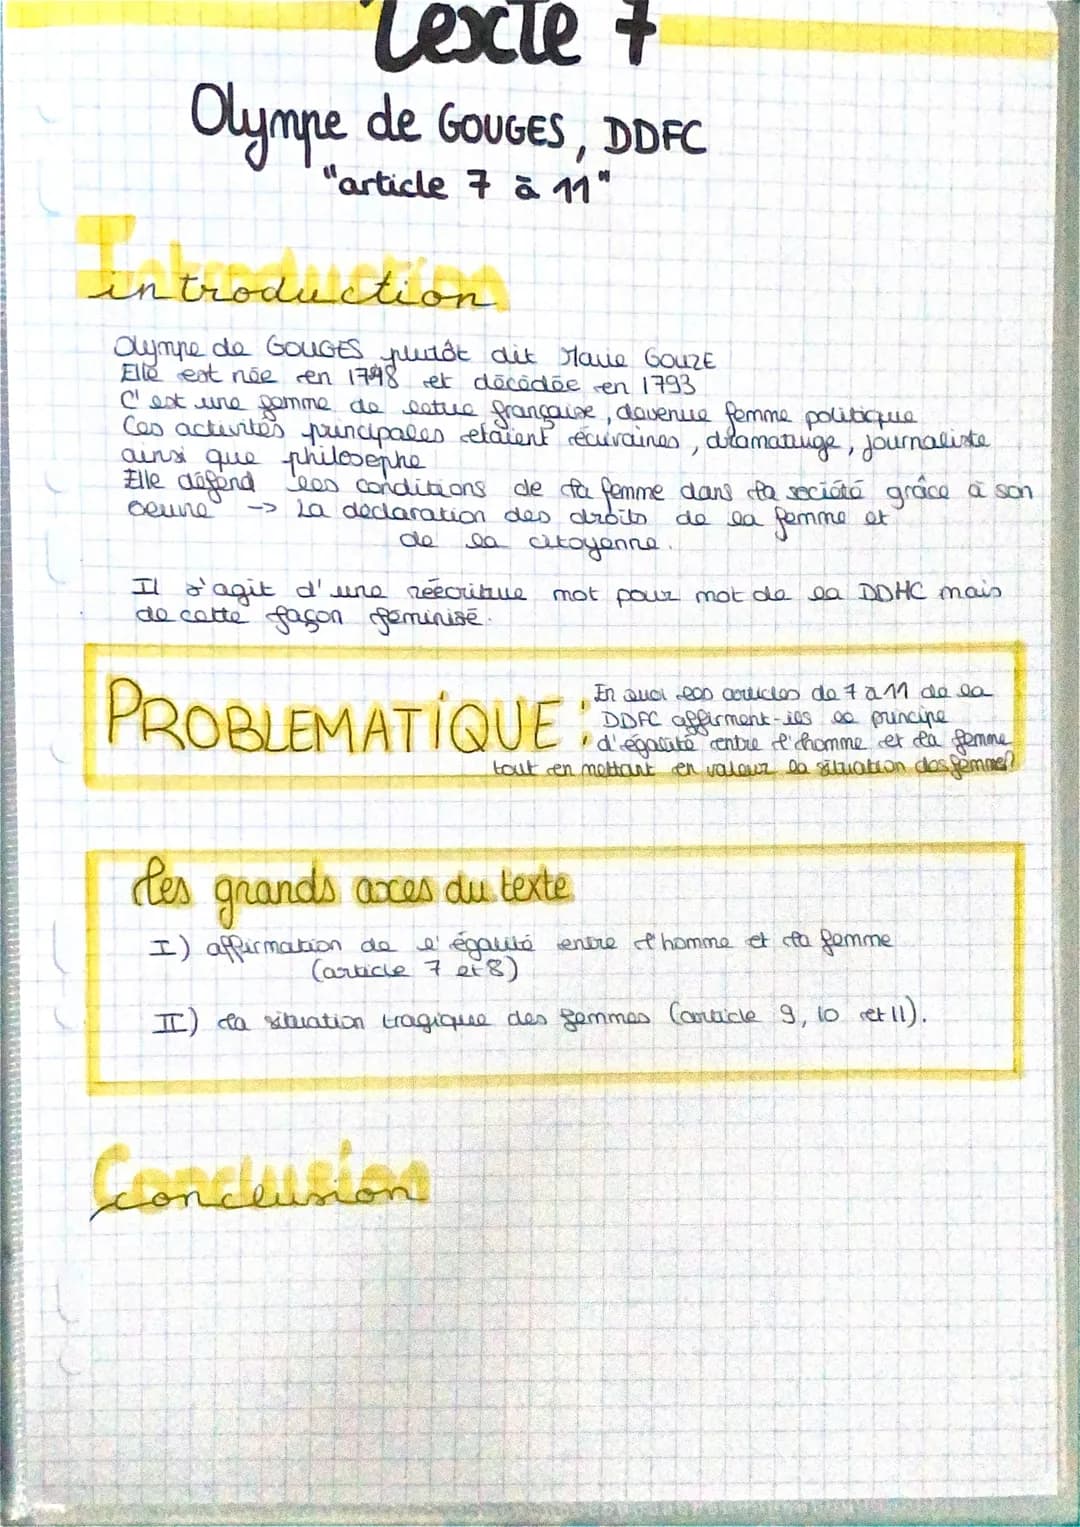 Texte 7
Olympe de GOUGES, DDFC
"article 7 à 11"
Introduction
introduction
Olympe de GOUGES plutôt dit Marie GOUZE
Elle est née en 1748 et décédée en 1793
C'est une femme de lettre française, devenue femme politique
Ces activités principales etaient écrivaines, dramaturge, journaliste
ainsi que philosophe
Elle défend les conditions de la femme dans la société grâce à son
oeuvre -> La declaration des droits de la femme et
de la citoyenne.
Il s'agit d'une réécriture mot pour mot de la DDHC mais
de cette façon féminisé.
PROBLEMATIQUE :
En quoi les articles de 7 à 11 de la
DDFC affirment-ils le principe
d'égalité entre l'homme et la femme
tout en mettant en valeur la situation des femmes?
Les grands axes du texte
I) affirmation de l'égalité entre l'homme et la femme
(article 7 et 8)
II) la situation tragique des femmes (article 9, 10 et 11).
Conclusion
conclusion